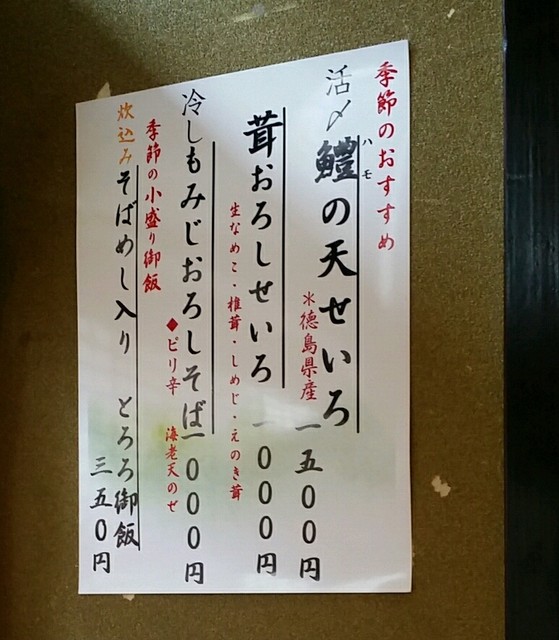 季節のおすすめ
活〆鱧の天せいろ
ハモ
＊徳島県産
一五00円
茸おろしせいろ
生なめこ・椎茸・しめじ・えのき茸
一000円
冷しもみじおろしそば
◆ピリ辛　海老天のせ
一000円
季節の小盛り御飯
炊込みそばめし入り　とろろ御飯
三五0円